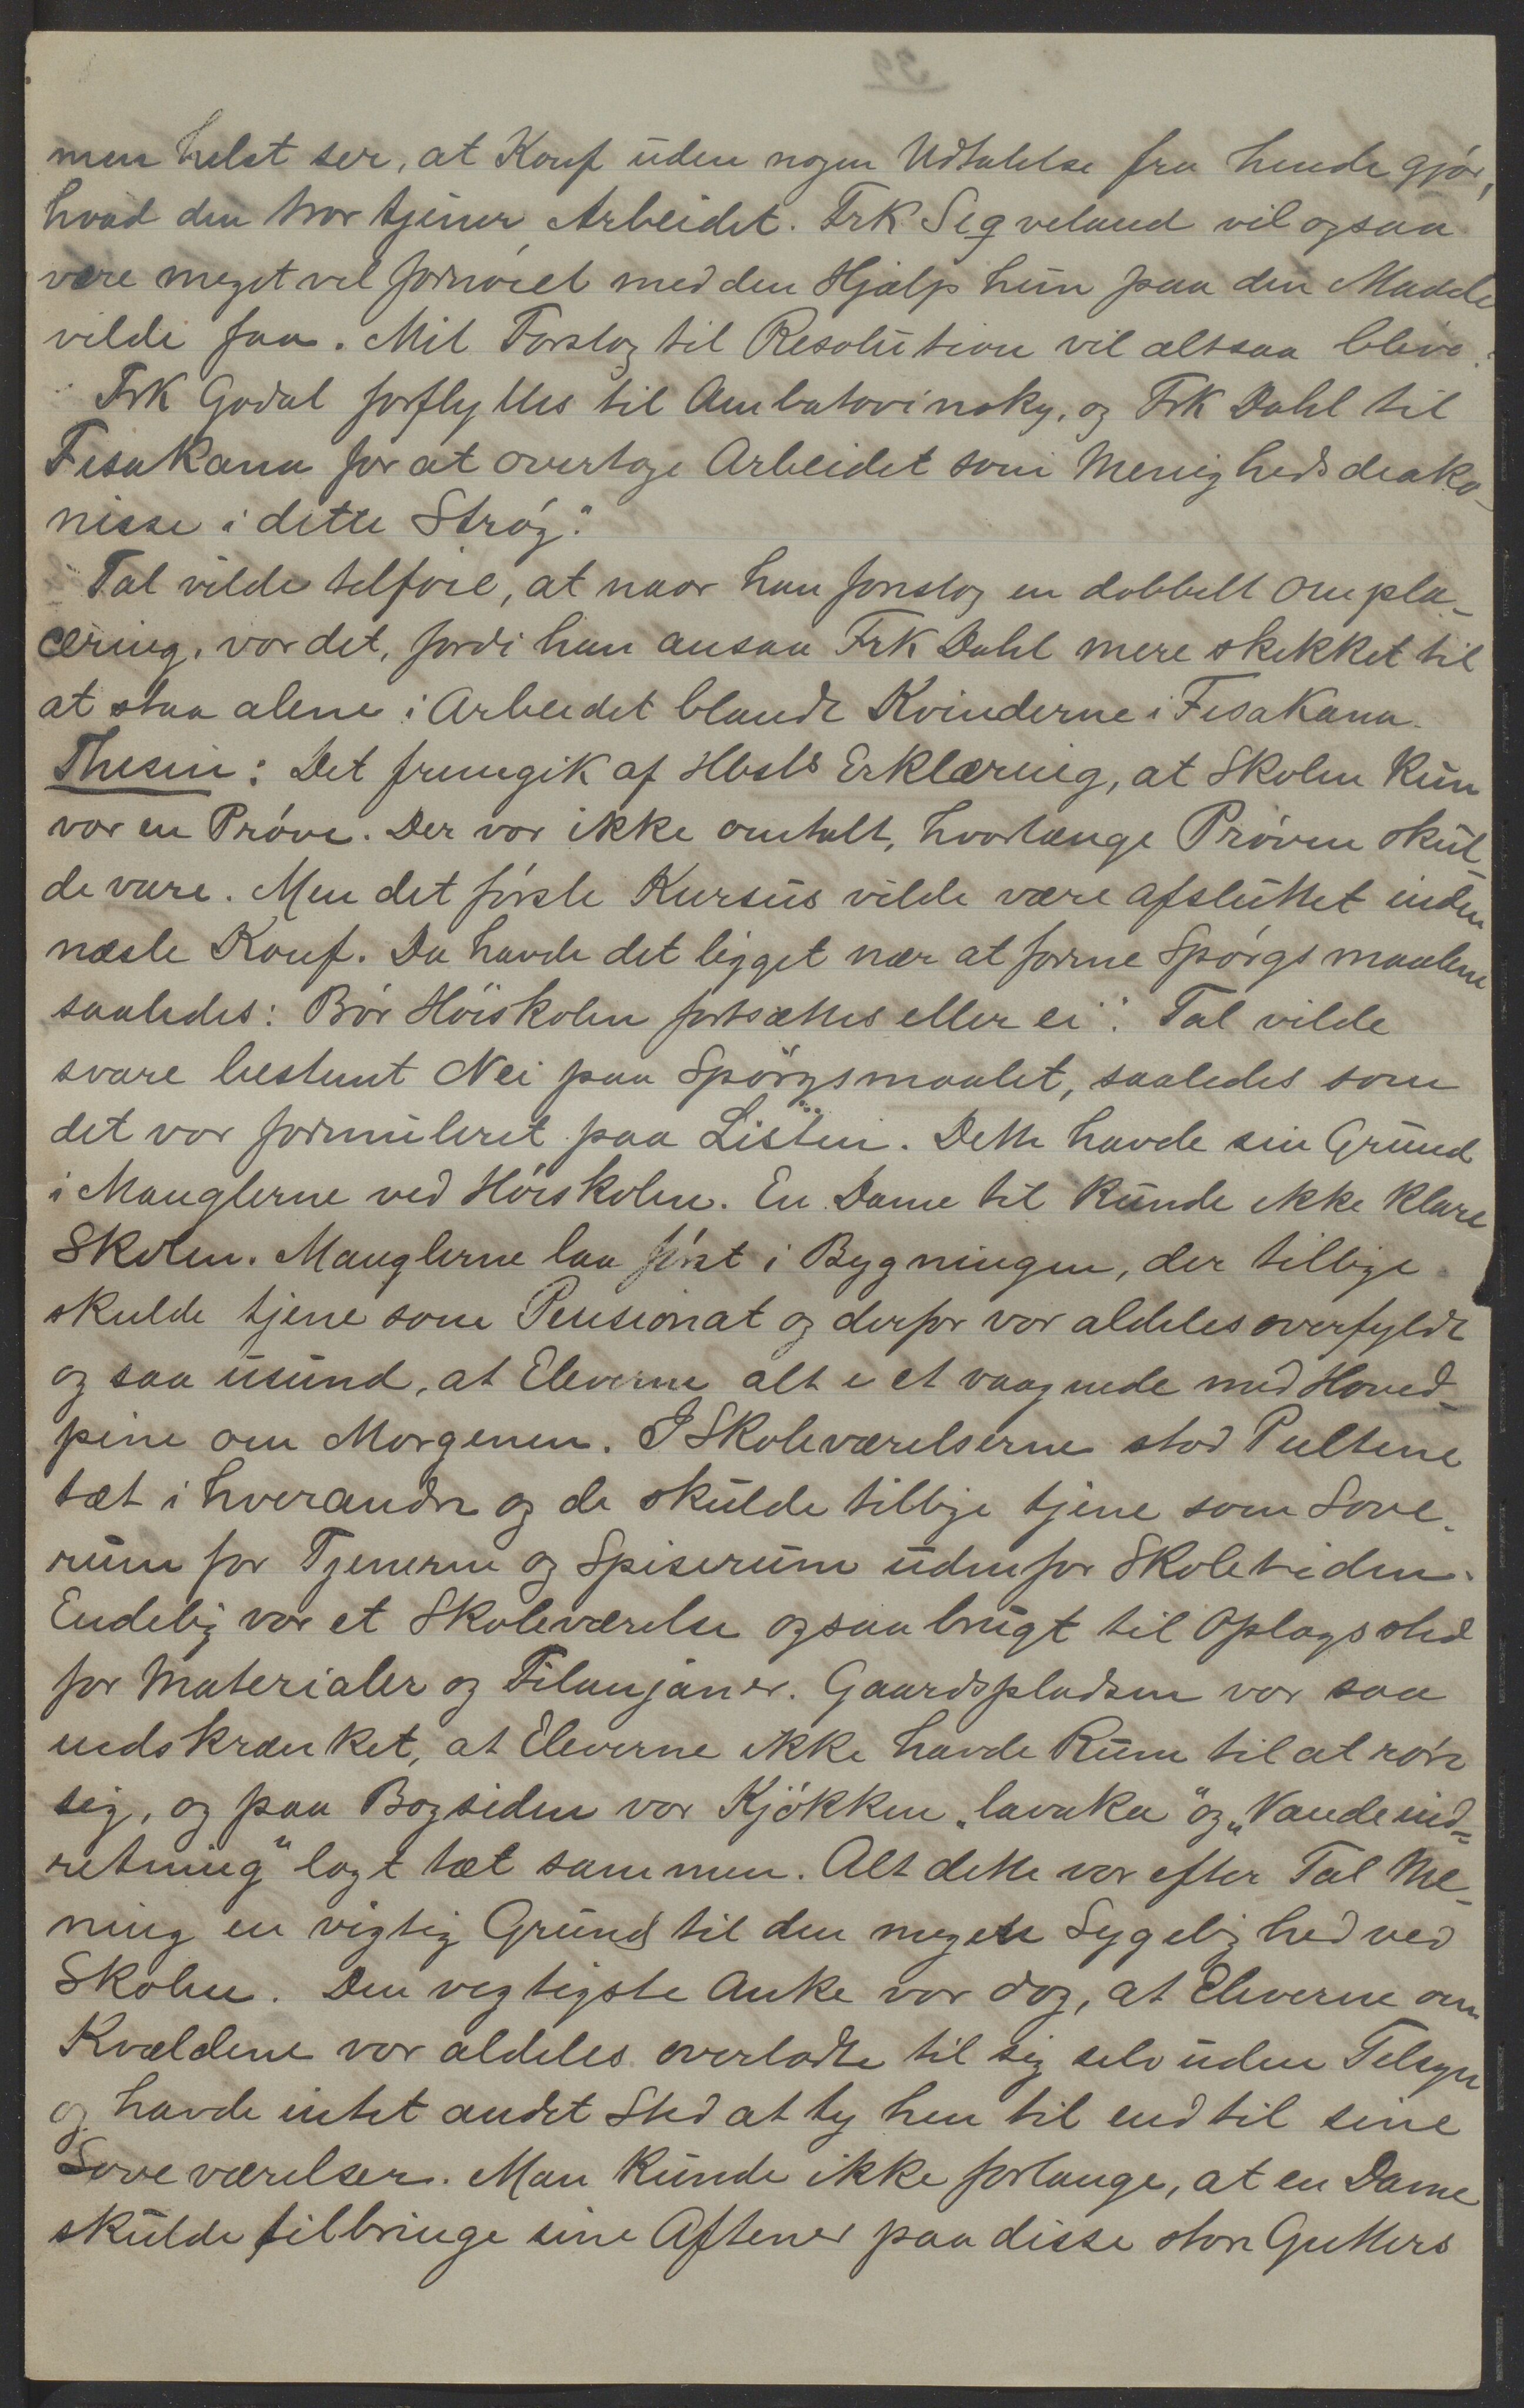 men helst ser, at Konf uden nogen Udtalelse fra hende gjør,
hvad den tror tjener Arbeidet. Frk Seqveland vil ogsaa
være meget vel fornøiet med den Hjælp hun paa den Maade
vilde faa. Mit Forslag til Resolution vil altsaa blive:
"Frk Godal forflyttes til Ambatovinaky, og Frk Dahl til
Fisakana for at overtage Arbeidet som Menighedsdiako-
nisse i dette Strøg."
Tal vilde tilføie, at naar han foreslog en dobbelt Ompla-
cering, var det, fordi han ansaa Frk Dahl mere skikket til
at staa alene i Arbeidet blandt Kvinderne i Fisakana.
Thesen: Det fremgik af Hbsts Erklæring, at Skolen kun
var en Prøve. Der var ikke omtalt, hvorlænge Prøven skul-
de vare. Men det første Kursus vilde være afsluttet inden
næste Konf. Da havde det ligget nær at forme Spørgsmaalene
saaledes: Bør Høiskolen fortsættes eller ei". Tal vilde
svare bestemt Nei paa Spørgsmaalet, saaledes som
det var formuleret paa Listen. Dette havde sin Grund
i Manglerne ved Høiskolen. En Dame til kunde ikke klare
Skolen. Manglerne laa først i Bygningen, der tillige
skulde tjene som Pensionat og derfor var aldeles overfyldt
og saa usund, at Eleverne alt i et vaagnede med Hoved-
pine om Morgenen. I Skoleværelserne stod Pultene
tæt i hverandre og de skulde tillige tjene som Sove-
rum for Tjenerne og Spiserum udenfor Skoletiden.
Endelig var et Skoleværelse ogsaa brugt til Oplagssted
for Materialer og Filanjaner. Gaardspladsen var saa
indskrænket, at Eleverne ikke havde Rum til at røre
sig, og paa Bagsiden var Kjøkken "lavaka" og "Vandeind-
retning" lagt tæt sammen. Alt dette var efter Tal Me-
ning en vigtig Grund til den megen Sygelighed ved
Skolen. Den vigtigste Anke var dog, at Eleverne om
Kvældene var aldeles overladte til sig selv uden Tilsyn
og havde intet andet Sted at ty hen til end til sine
Soveværelser. Man kunde ikke forlange, at en Dame
skulde tilbringe sine Aftener paa disse store Gutters